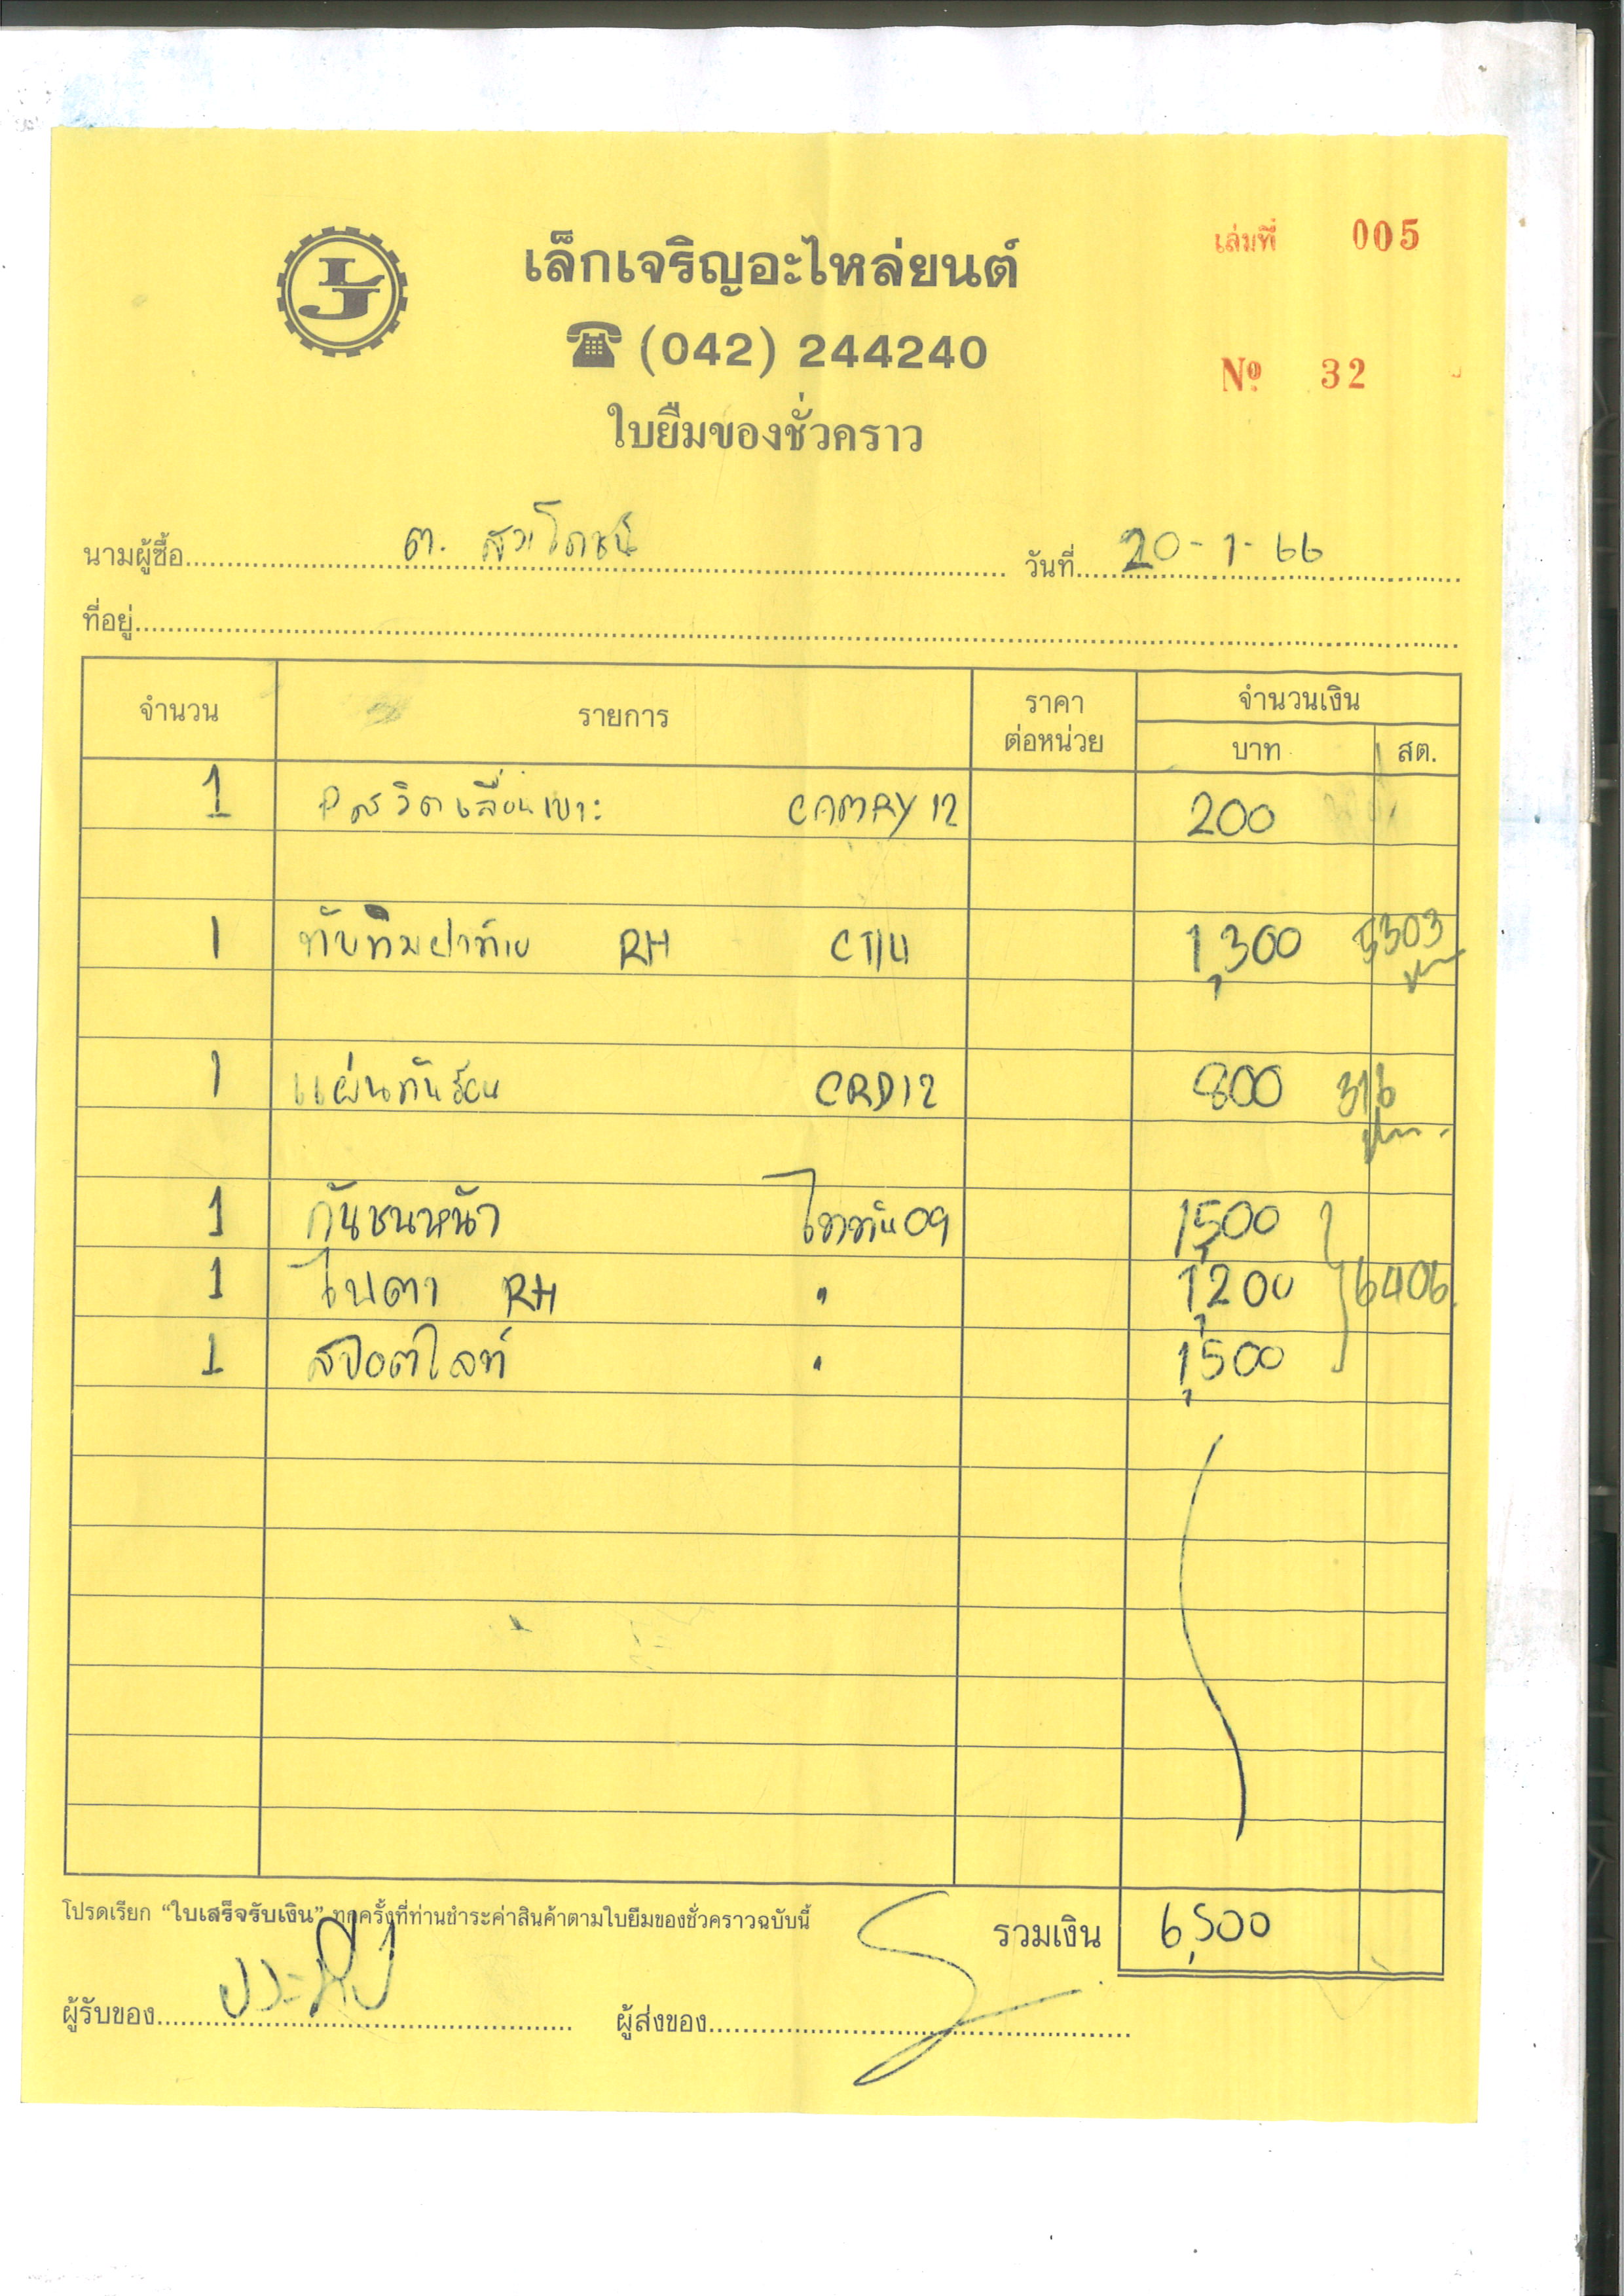 LJ
เล็กเจริญอะไหล่ยนต์
เล่มที่ 005
☎ (042) 244240
Nº 32
ใบยืมของชั่วคราว
นามผู้ซื้อ ต. วันที่ 20-1-66
ที่อยู่
จำนวน รายการ ราคาต่อหน่วย จำนวนเงิน
บาท สต.
1 เลื่อนเบาะ CAMRY 12 200
1 ทับทิมฝาท้าย RH CT14 1,300 5303
1 แผ่นกันร้อน CRD12 800 316
1 กันชนหน้า ไททัน 09 1,500
1 ไฟตา RH " 1,200 6406
1 สปอตไลท์ " 1,500
โปรดเรียก “ใบเสร็จรับเงิน” ทุกครั้งที่ท่านชำระค่าสินค้าตามใบยืมของชั่วคราวฉบับนี้
รวมเงิน 6,500
ผู้รับของ ประทีป ผู้ส่งของ